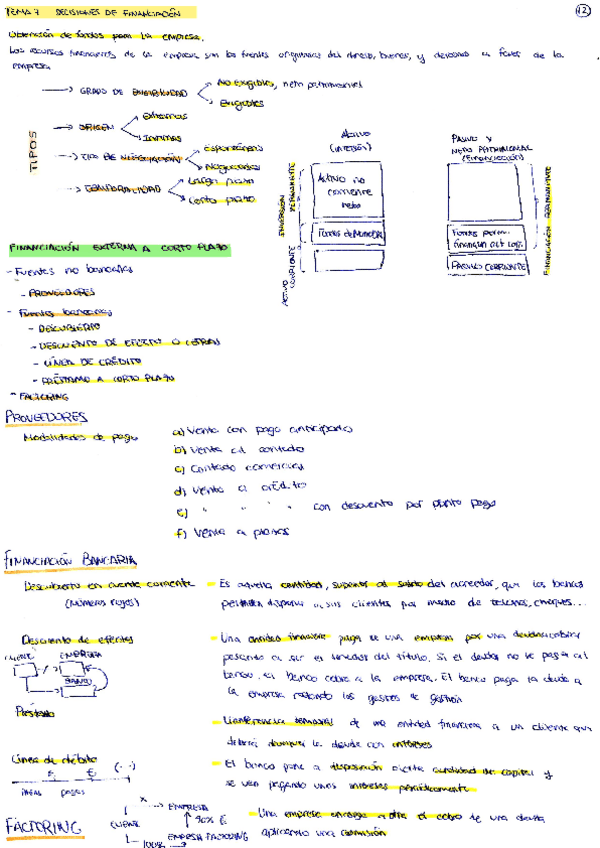 TEMA 7 DECISIONES DE FINANCIACIÓN
12
Obtención de fondos para la empresa.
Los recursos financieros de la empresa son las fuentes originarias del dinero, bienes, y derechos a favor de la
empresa
TIPOS
GRADO DE EXIGIBILIDAD
No exigibles, neto patrimonial
Exigibles
ORIGEN
Externas
Internas
TIPO DE NEGOCIACIÓN
Espontáneas
Negociadas
TEMPORALIDAD
Largo plazo
Corto plazo
ACTIVO
(INVERSIÓN)
PASIVO Y
NETO PATRIMONIAL
(Financiación)
INVERSIÓN PERMANENTE
Activo no
corriente
neto
Fondo de Maniobra
ACTIVO CORRIENTE
Fondos perm.
financian act
PASIVO CORRIENTE
FINANCIACIÓN PERMANENTE
FINANCIACIÓN EXTERNA A CORTO PLAZO
- Fuentes no bancarias
- PROVEEDORES
- Fuentes bancarias
- DESCUBIERTO
- DESCUENTO DE EFECTO O LETRAS
- LÍNEA DE CRÉDITO
- PRÉSTAMO A CORTO PLAZO
- FACTORING
PROVEEDORES
Modalidades de pago
a) Venta con pago anticipado
b) Venta al contado
c) Contado comercial
d) Venta a crédito
e) " " " con descuento por pronto pago
f) Venta a plazos
FINANCIACIÓN BANCARIA
Descubierto en cuenta corriente
(números rojos)
- Es aquella cantidad, superior al saldo del acreedor, que los bancos
permiten disponer a sus clientes por medio de talones, cheques...
Descuento de efectos
CLIENTE EMPRESA
BANCO
- Una entidad financiera paga a una empresa por una deuda
pasando a ser el tenedor del título, si el deudor no le paga al
banco, el banco cobra a la empresa. El banco paga la deuda a
la empresa restando los gastos de gestión
Préstamo
- Transferencia temporal de una entidad financiera a un cliente que
deberá devolver la deuda con intereses
Línea de débito
€ € (...)
pagas pagas
- El banco pone a disposición cierta cantidad de capital y
se van pagando unos intereses periódicamente
FACTORING
CLIENTE
X
EMPRESA
90% €
100%
EMPRESA FACTORING
- Una empresa encarga a otra el cobro de una deuda
aplicando una comisión